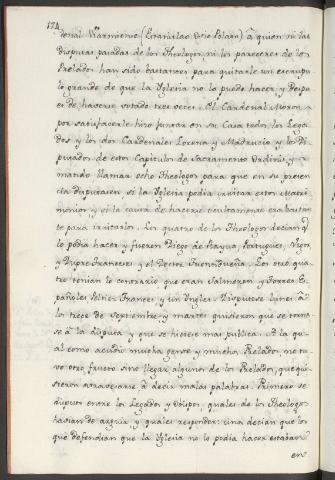 174
denal Warmiense (Estanislao Osio Polaco) a quien ni las
disputas pasadas de los Theologos, ni los pareceres de los
Prelados han sido bastantes para quitarle un escrupu
lo grande de que la Iglesia no lo puede hacer, y despu
es de haverse votado tres veces. El Cardenal Moron
por satisfacerle hizo juntar en su Casa todos los Lega
dos y los dos Cardenales Lorena y Madrucio y los Di
putados de estos Capitulos de Sacramento Ordinis, y
mandó llamar ocho Theologos para que en su presen
cia disputasen, si la Iglesia podia irritar estos Matri
monios, y si la causa de hacerse ocultamente era bastan
te para irritarlos. Los quatro de los Theologos decian q.
lo podia hacer y fueron Diego de Payva, Portugues, Vigor
y Dupre Franceses y el Doctor Fuentidueña. Los otros qua
tro tenian lo contrario que eran Salmeron, y Torres Es
pañoles Francés, y un Ingles. Disputose Lunes à
los trece de Septiembre y martes quisieron que se torna
se à la disputa y que se hiciese mas publica. A la qu
al como acudió mucha gente y muchos Prelados, no tu
vo otro fructo sino llegar algunos de los Prelados, que qui
sieron atravesarse à decir malas palabras. Primero se
disputó entre los Legados y Obispos quales de los Theologos
havian de arguir, y quales responder: unos decian que los
que defendian que la Iglesia no lo podia hacer estaban
en